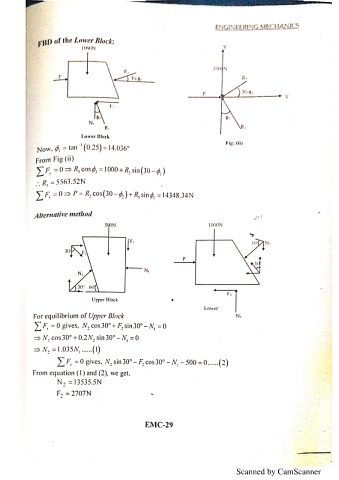 ENGINEERING MECHANICS
FBD of the Lower Block:
1000N
P
R₂
R₁
N₁
Lower Block
Y
1000N
R₂
30-ϕ₂
P
X
R₁
Fig: (ii)
Now, ϕ₁ = tan⁻¹(0.25) = 14.036°
From Fig (ii)
∑Fᵧ = 0 ⇒ R₁ cos ϕ₁ = 1000 + R₂ sin(30 − ϕ₂)
∴ R₁ = 5563.52N
∑Fₓ = 0 ⇒ P = R₂ cos(30 − ϕ₂) + R₁ sin ϕ₁ = 14348.34N
Alternative method
500N
1000N
30°
F₂
N₂
30°
60°
F₁
N₁
Upper Block
P
N₂
F₃
N₃
Lower
For equilibrium of Upper Block
∑Fₓ = 0 gives, N₂ cos 30° + F₂ sin 30° − N₁ = 0
⇒ N₂ cos 30° + 0.2N₂ sin 30° − N₁ = 0
⇒ N₂ = 1.035N₁ ......(1)
∑Fᵧ = 0 gives, N₂ sin 30° − F₂ cos 30° − N₁ − 500 = 0......(2)
From equation (1) and (2), we get,
N₂ = 13535.5N
F₂ = 2707N
EMC-29
Scanned by CamScanner